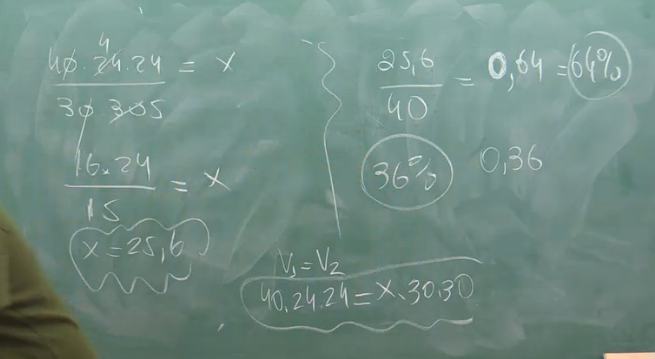 40.24.24 = x
4
30 305
16.24 = x
15
x = 25,6
25,6 = 0,64 = 64%
40
36% 0,36
V₁=V₂
40.24.24 = x.30.30